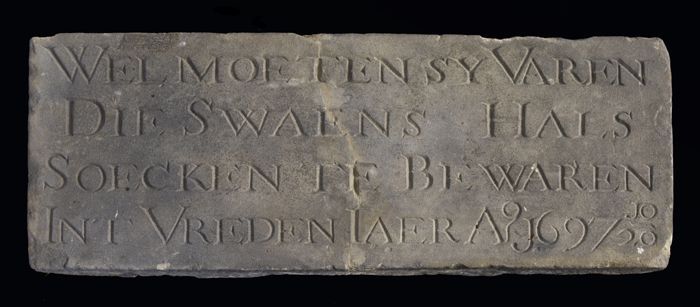 WEL MOETEN SY VAREN
DIE SWAENS HALS
SOECKEN TE BEWAREN
IN'T VREDEN IAER A° 1697